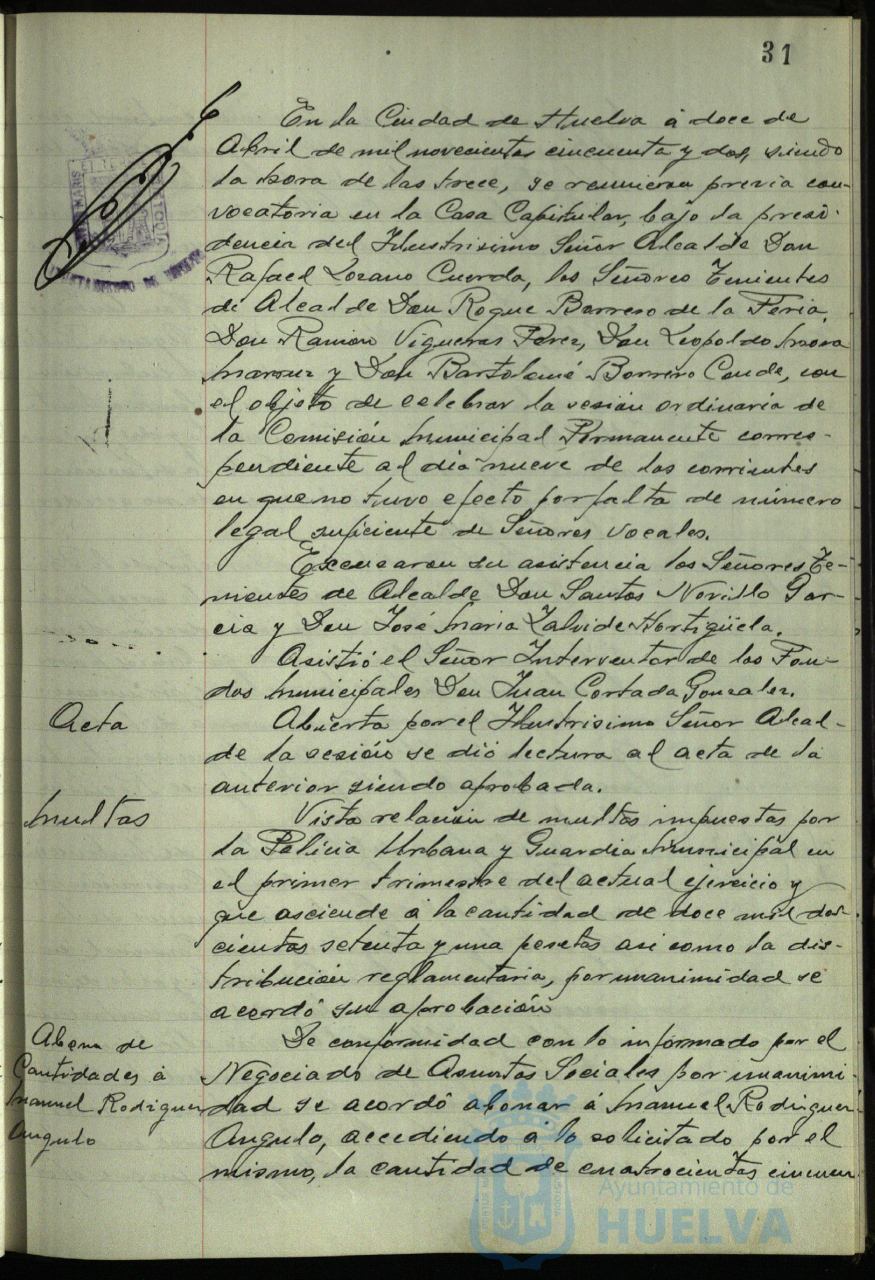 31
En la Ciudad de Huelva á doce de
Abril de mil novecientos cincuenta y dos, siendo
la hora de las trece, se reunieron previa con-
vocatoria en la Casa Capitular, bajo la presi-
dencia del Ilustrisimo Señor Alcalde Don
Rafael Lozano Cuerda, los Señores Tenientes
de Alcalde Don Roque Barrero de la Feria,
Don Ramon Vigueras Perez, Don Leopoldo Mora
y Don Bartolomé Borrero Conde, con
el objeto de celebrar la sesión ordinaria de
la Comisión Municipal Permanente corres-
pondiente al dia nueve de los corrientes
en que no tuvo efecto por falta de número
legal suficiente de Señores vocales.
Excusaron su asistencia los Señores Te-
nientes de Alcalde Don Santos Novillo Gar-
cia y Don José Maria Zalvide Hortigüela.
Asistió el Señor Interventor de los Fon-
dos Municipales Don Juan Cortada Gonzalez.
Acta
Abierta por el Ilustrisimo Señor Alcal-
de la sesión se dió lectura al acta de la
anterior siendo aprobada.
Multas
Vista relación de multas impuestas por
la Policia Urbana y Guardia Municipal en
el primer trimestre del actual ejercicio y
que asciende á la cantidad de doce mil dos-
cientas setenta y una pesetas asi como la dis-
tribución reglamentaria, por unanimidad se
acordó su aprobación
Abono de
Cantidades á
Manuel Rodriguez
Angulo
De conformidad con lo informado por el
Negociado de Asuntos Sociales por unanimi-
dad se acordó abonar á Manuel Rodriguez
Angulo, accediendo á lo solicitado por el
mismo, la cantidad de cuatrocientas cincuen
Ayuntamiento de
HUELVA